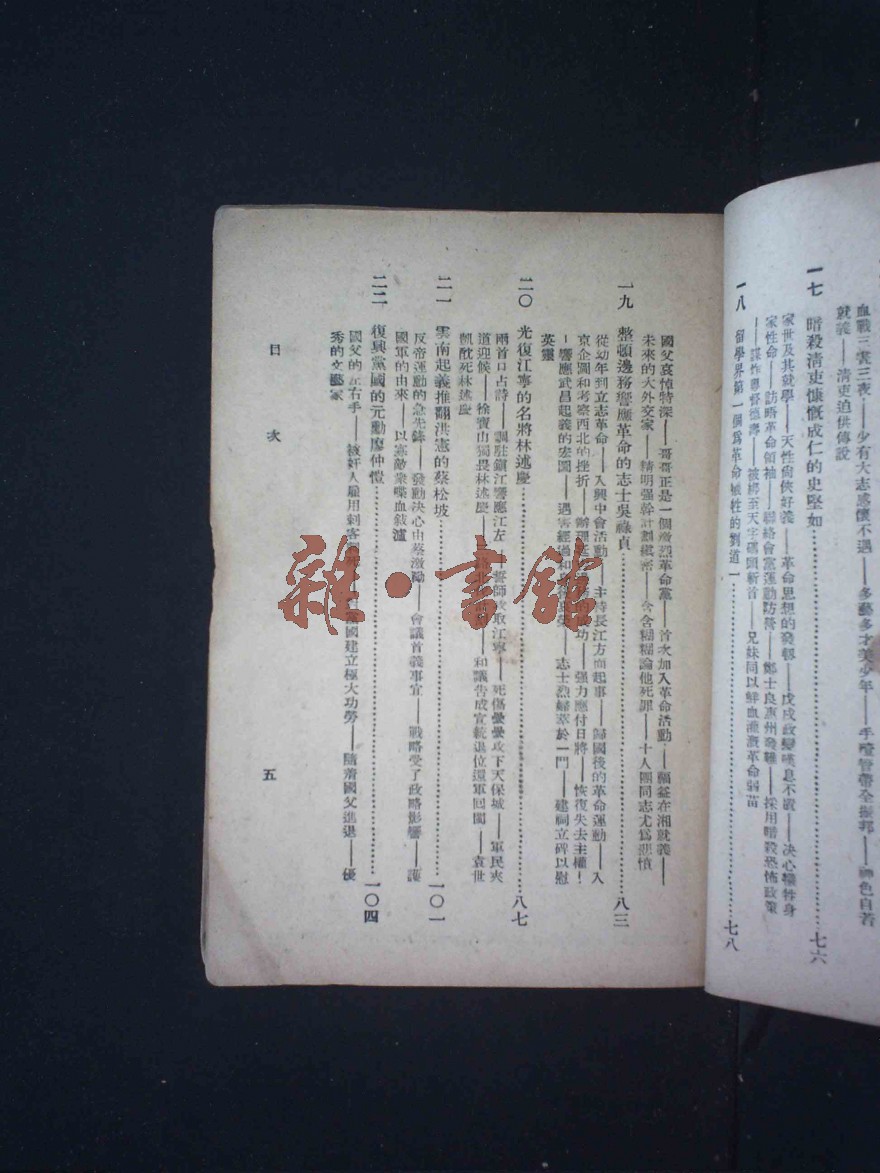 血戰三晝三夜——少有大志感懷不遇——多藝多才美少年——手
神色自若
就義——清吏迫供傳說
一七 暗殺清吏慷慨成仁的史堅如 七六
家世及其就學——天性尙俠好義——革命思想的發
戊戌政變嘆息不
決心犧牲身
家性命——訪晤革命領袖——聯絡會黨運動防營——鄭士良惠州發難——採用暗殺恐怖政策
——謀炸粵督德壽——被綁至天字碼頭斬首——兄妹同以鮮血灌漑革命
苗
一八 留學界第一個爲革命犧牲的劉道一 七八
國父哀悼特深——哥哥正是一個激烈革命黨——首次加入革命活動
在湘就義——
未來的大外交家——精明强幹計劃縝密——含含糊糊論他死罪——十人團同志尤爲悲憤
一九 整頓邊務響應革命的志士吳祿貞 八三
從幼年到立志革命——入興中會活動——主持長江方面起事——歸國後的革命運動——入
京企圖和考察西北的挫折——辦理
的成功——强力應付日將——恢復失去主權！
——響應武昌起義的宏圖——遇害經過和
志士烈婦萃於一門——建祠立碑以慰
英靈
二〇 光復江寧的名將林述慶 八七
兩首口占詩——調駐鎭江響應江左——誓師
取江寧——死傷纍纍攻下天保城——軍民夾
道迎候——徐寶山獨畏林述慶——
和議告成宣統退位還軍回閩——袁世
凱酖死林述慶
二一 雲南起義推翻洪憲的蔡松坡 一〇一
反帝運動的急先鋒——發動決心由蔡激勵——會議首義事宜——戰略受了政略影響——護
國軍的由來——以寡敵衆喋血敍瀘
二二 復興黨國的元勳廖仲愷 一〇四
國父的左右手——被奸人雇用刺客
國建立極大功勞——隨着國父進退——優
秀的文藝家
目次
五
雜·書館